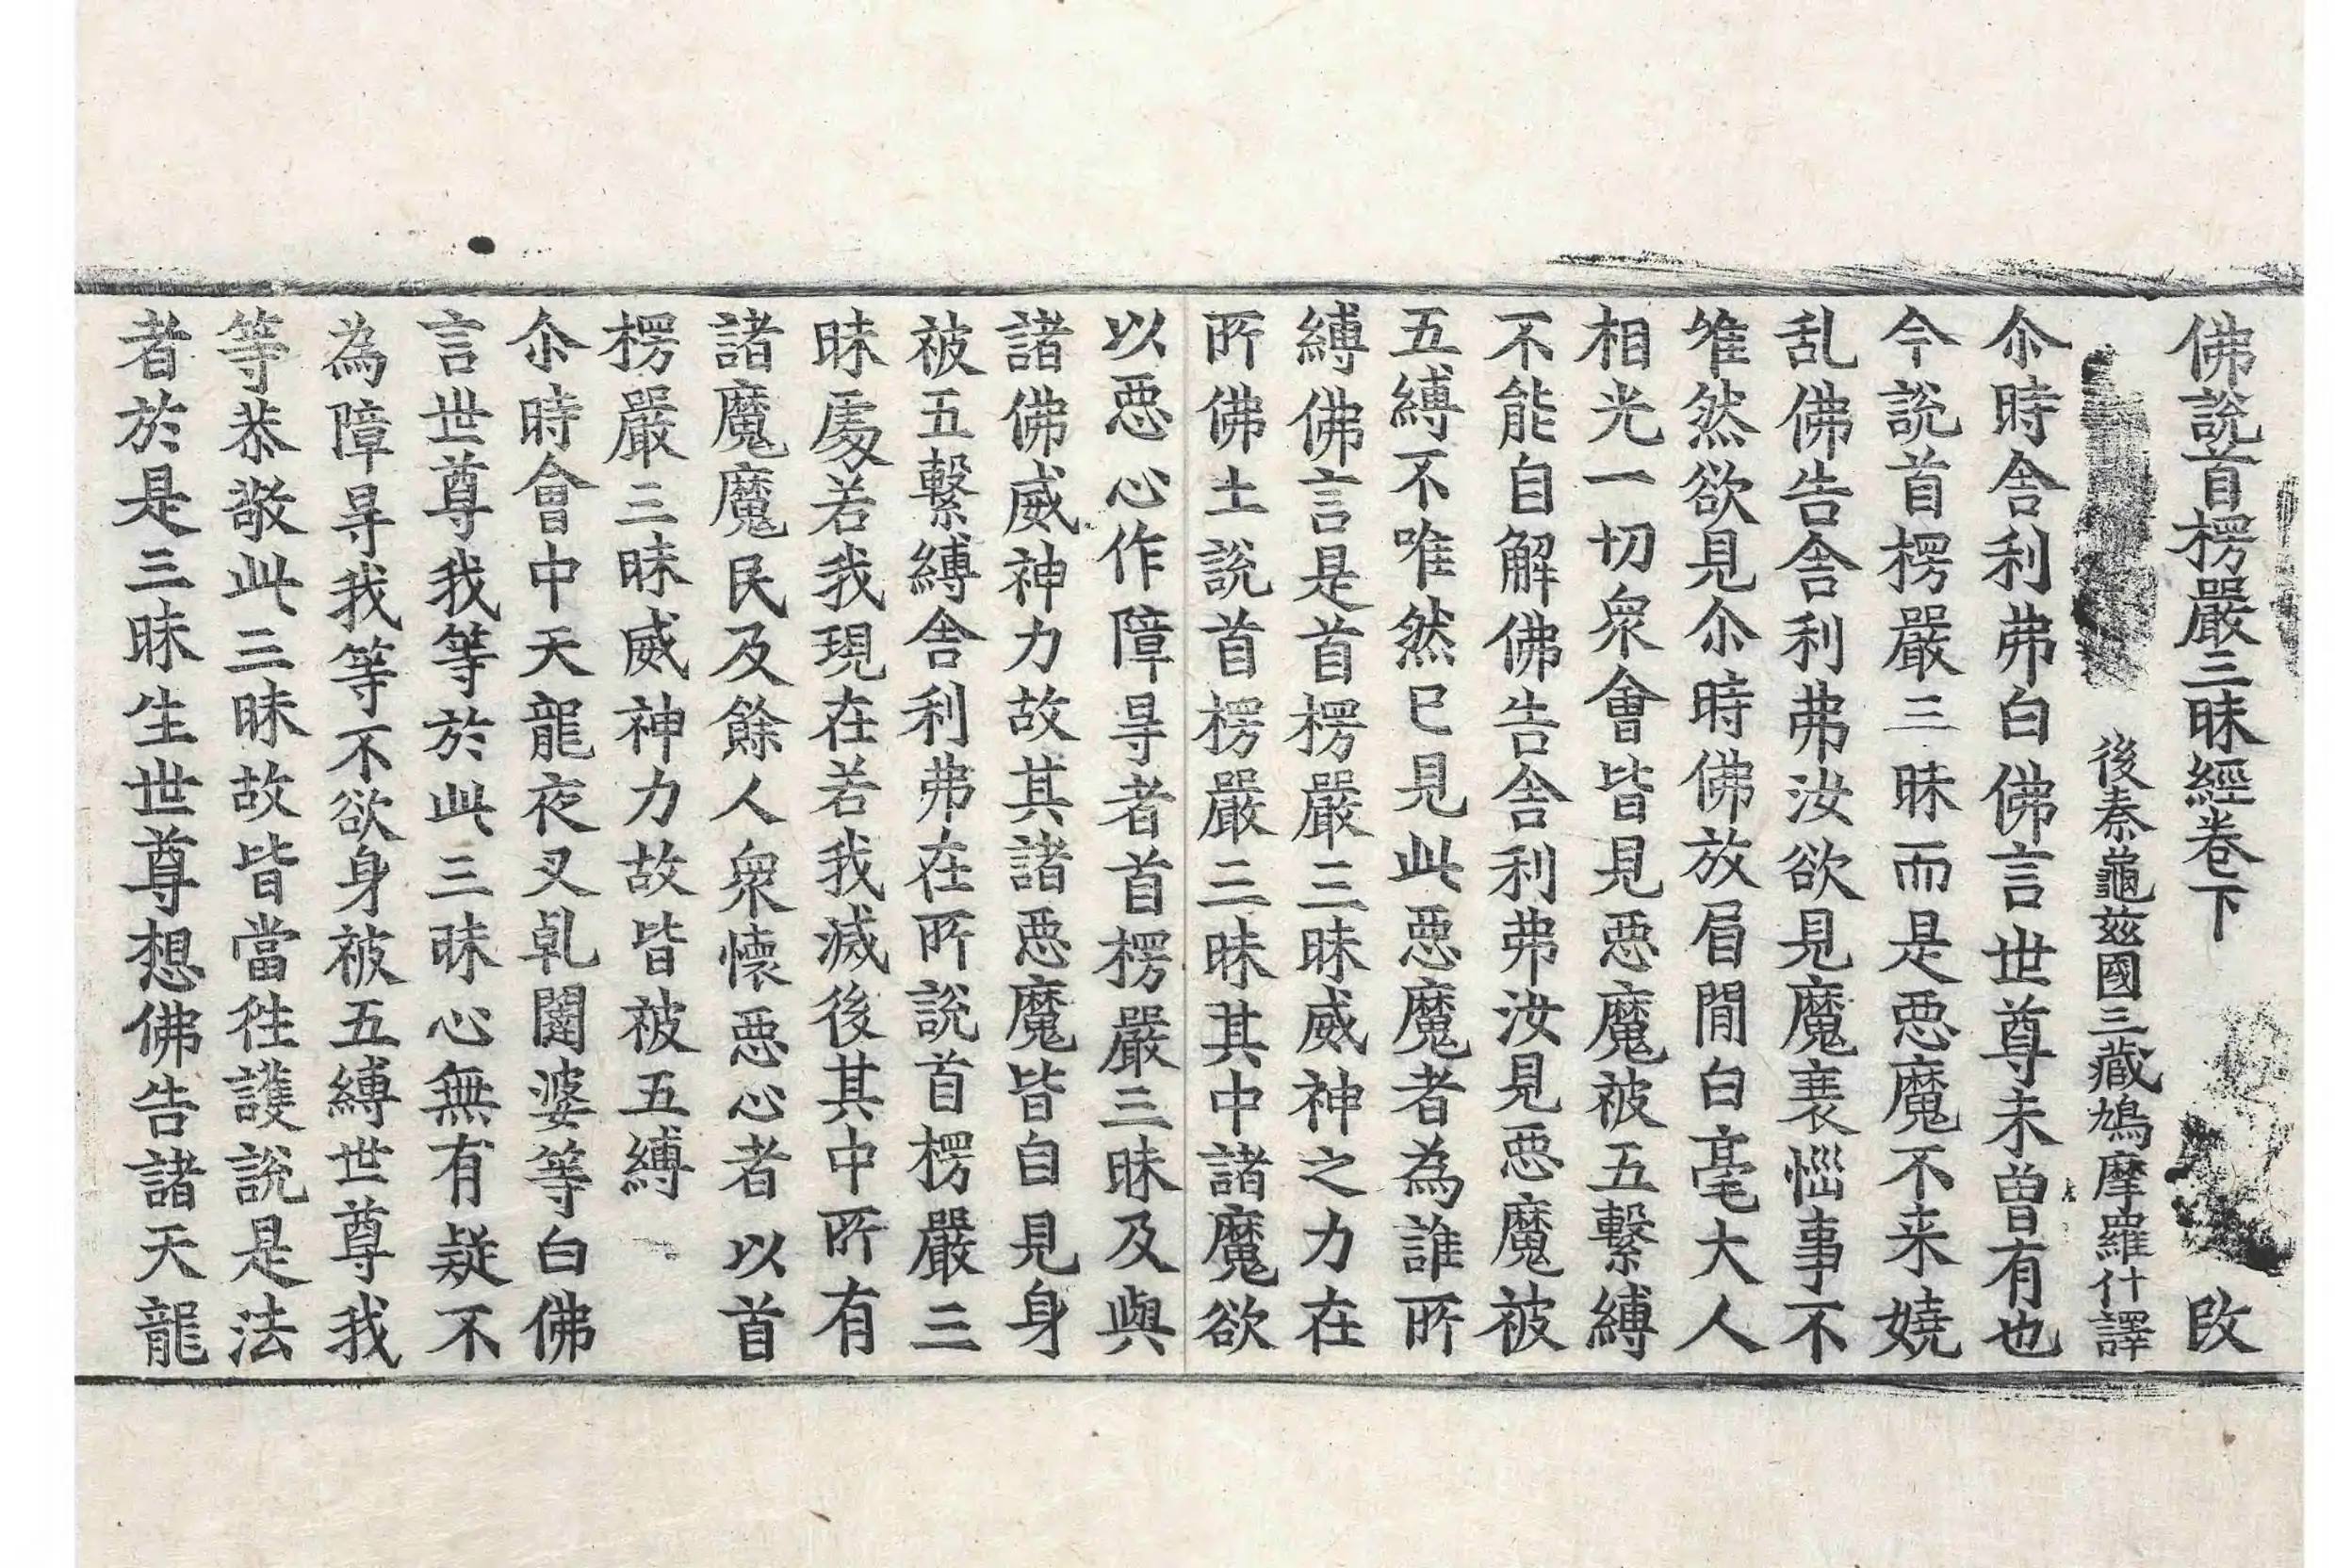 佛說首楞嚴三昧經卷下 改
後秦龜茲國三藏鳩摩羅什譯
尒時舎利弗白佛言世尊未曾有也
今說首楞嚴三昧而是惡魔不来嬈
乱佛告舎利弗汝欲見魔衰惱事不
唯然欲見尒時佛放眉間白毫大人
相光一切衆會皆見惡魔被五繫縛
不能自解佛告舎利弗汝見惡魔被
五縛不唯然已見此惡魔者為誰所
縛佛言是首楞嚴三昧威神之力在
所佛土說首楞嚴三昧其中諸魔欲
以惡心作障㝵者首楞嚴三昧及與
諸佛威神力故其諸惡魔皆自見身
被五繫縛舎利弗在所說首楞嚴三
昧處若我現在若我滅後其中所有
諸魔魔民及餘人衆懷惡心者以首
楞嚴三昧威神力故皆被五縛
尒時會中天龍夜叉乹闥婆等白佛
言世尊我等於此三昧心無有疑不
為障㝵我等不欲身被五縛世尊我
等恭敬此三昧故皆當往護說是法
者於是三昧生世尊想佛告諸天龍